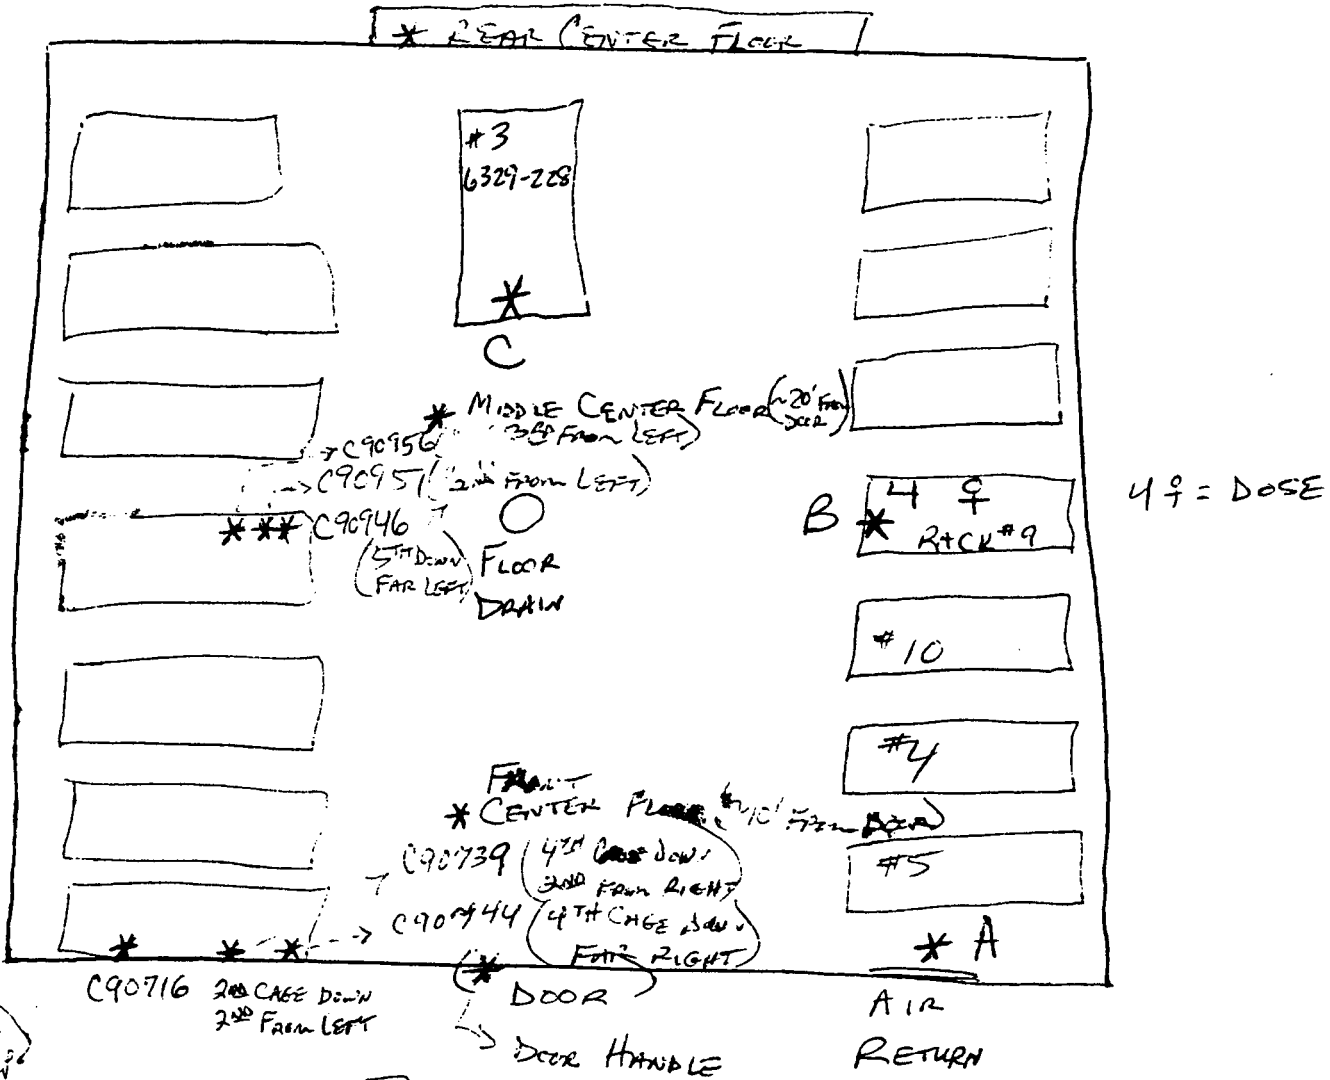 * REAR CENTER FLOOR
#3
6329-228
*
C
* MIDDLE CENTER FLOOR (~20' FROM
DOOR)
C90956 (3RD FROM LEFT)
C90951 (2ND FROM LEFT)
* ** C90946
(5TH DOWN
FAR LEFT)
FLOOR
DRAIN
B
* 4 ♀
RACK #9
4 ♀ = DOSE
#10
#4
#5
FRONT
* CENTER FLOOR (~10' FROM DOOR)
C90739 (4TH CAGE DOWN
2ND FROM RIGHT)
(4TH CAGE DOWN
FAR RIGHT)
* * *
C90716 2ND CAGE DOWN
2ND FROM LEFT
(*)
DOOR
DOOR HANDLE
* A
AIR
RETURN